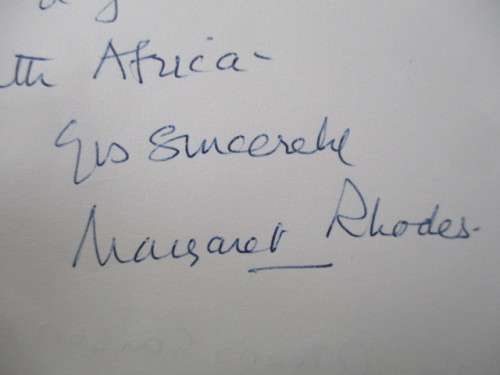 th Africa-
Yrs Sincerely
Margaret Rhodes.